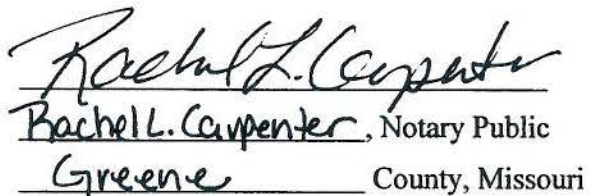 Rachel L. Carpenter
Rachel L. Carpenter, Notary Public
Greene County, Missouri